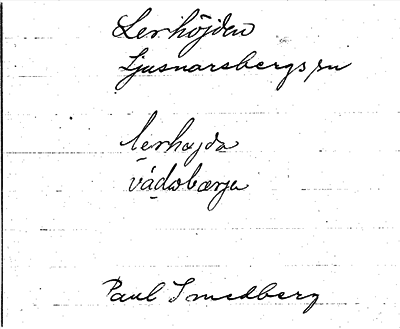 Lerhöjden
Ljusnarsbergs sn
lerhøjda
vádabærja
Paul Smedberg